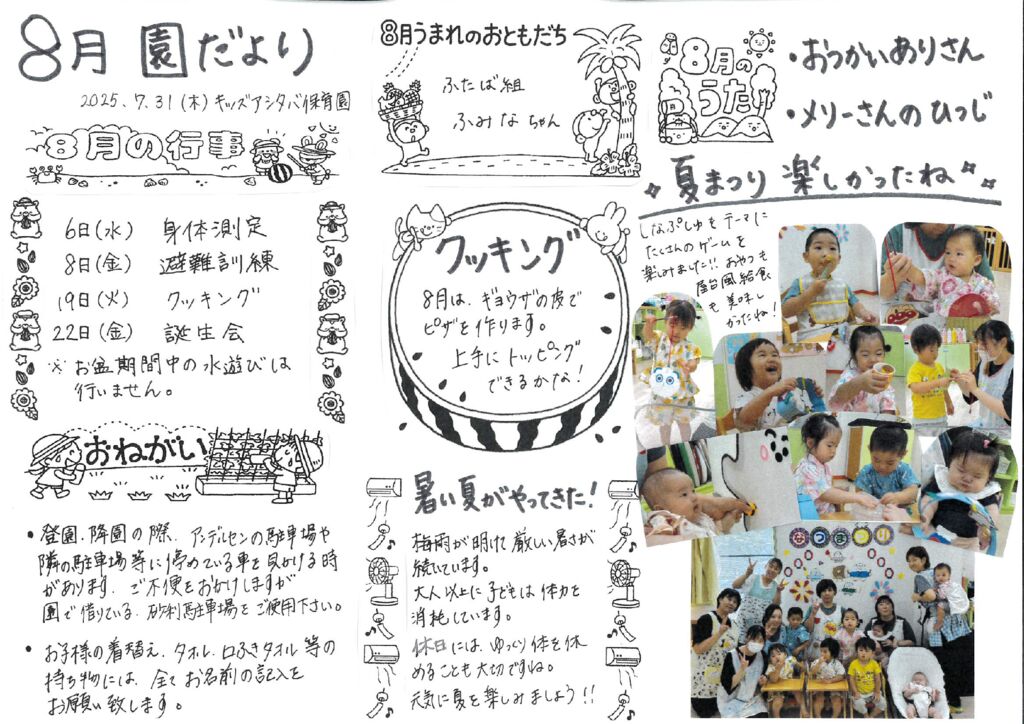 8月 園だより
2025.7.31(木)キッズアシタバ保育園
8月の行事
6日(水) 身体測定
8日(金) 避難訓練
19日(火) クッキング
22日(金) 誕生会
※お盆期間中の水遊びは
行いません。
おねがい
・登園、降園の際、アンデルセンの駐車場や
隣の駐車場等に停めている車を見かける時
があります。ご不便をおかけしますが
園で借りている、砂利駐車場をご使用下さい。
・お子様の着替え、タオル、口ふきタオル等の
持ち物には、全てお名前の記入を
お願い致します。
8月うまれのおともだち
ふたば組
ふみなちゃん
クッキング
8月は、ギョウザの皮で
ピザを作ります。
上手にトッピング
できるかな!
暑い夏がやってきた!
梅雨が明けて厳しい暑さが
続いています。
大人以上に子どもは体力を
消耗しています。
休日には、ゆっくり体を休
めることも大切ですね。
元気に夏を楽しみましょう!!
8月のうた
・おつかいありさん
・メリーさんのひつじ
夏まつり 楽しかったね
しなぷしゅをテーマに
たくさんのゲームを
楽しみました!!おやつも
屋台風給食
も美味し
かったね!
なつまつり